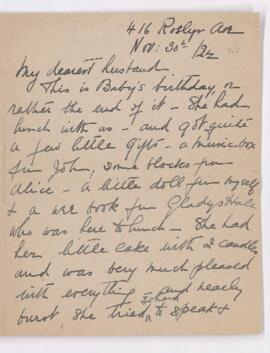 416 Roslyn Ave
Nov: 30th /22
My dearest husband
This is Baby's birthday, or
rather the end of it - She had
lunch with us - and got quite
a few little gifts - a music box
from John, some blocks from
Alice - a little doll from myself
& a wee book from Gladys Hale
who was here to lunch - She had
her little cake with 2 candles
and was very much pleased
with everything and nearly
burst, she tried so hard to speak &